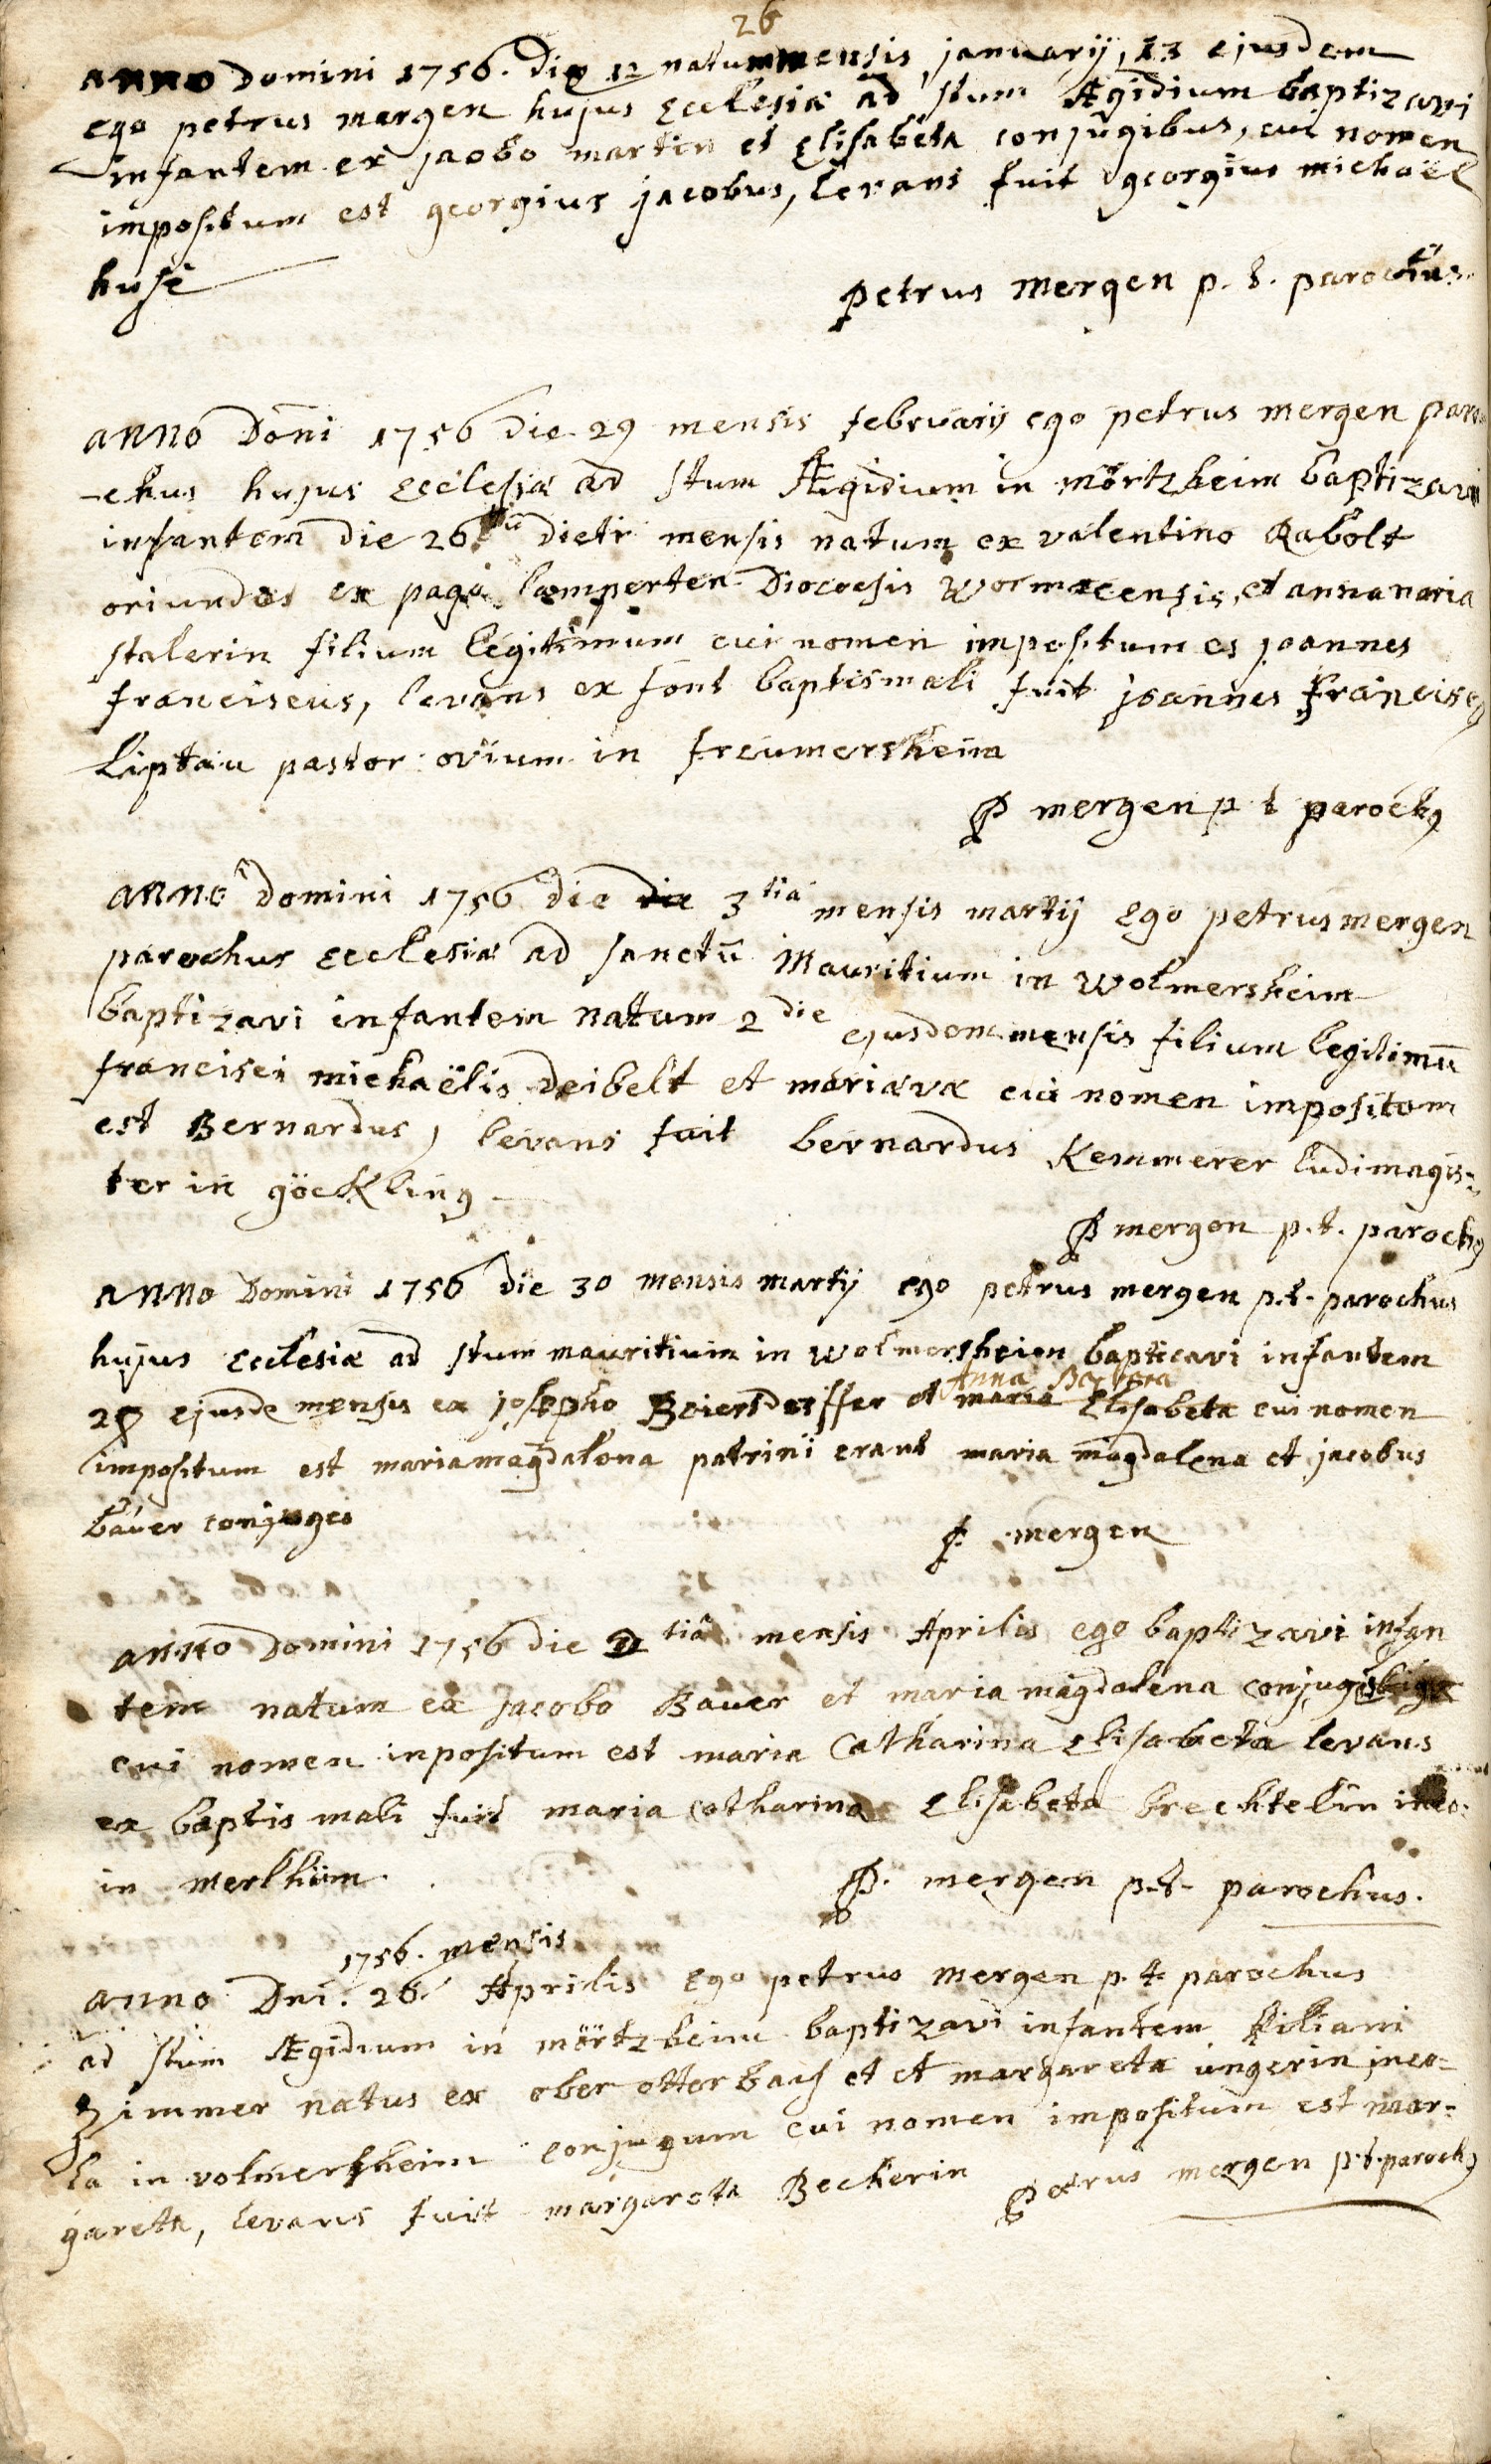 26
anno Domini 1756. die 12 natum mensis januarij, 13 ejusdem
ego petrus mergen hujus Ecclesiæ ad stum Ægidium baptizavi
infantem ex jacobo martin et Elisabeta conjugibus, cui nomen
impositum est georgius jacobus, levans fuit georgius michaël
huse
petrus mergen p. t. parochus
anno Doni 1756 die 29 mensis februarij ego petrus mergen paro-
-chus hujus Ecclesiæ ad stum Ægidium in mörtzheim baptizavi
infantem die 26 dicti mensis natum ex valentino Rabolt
oriundos ex pago lamperten Dioecesis wormacensis, et anna maria
stalerin filium legitimum cui nomen impositum es joannes
franciscus, levans ex font baptismali fuit joannes francisc9
liptau pastor ovium in freimersheim
P mergen p t paroch9
anno Domini 1756 die die 3 tia mensis martij ego petrus mergen
parochus Ecclesiæ ad sanctū Mauritium in wolmersheim
baptizavi infantem natum 2 die ejusdem mensis filium legitimū
francisci michaëlis Deibelt et mariæva cui nomen impositum
est Bernardus, levans fuit bernardus Kemmerer ludimagis-
ter in göckling
P mergen p. t. paroch9
anno Domini 1756 die 30 mensis martij ego petrus mergen p. t. parochus
hujus Ecclesiæ ad stum mauritium in wolmersheim bapticavi infantem
Anna Barbara
28 ejusde mensis ex josepho Beiersdorffer et maria Elisabeta cui nomen
impositum est mariamagdalena patrini erant maria magdalena et jacobus
bauer conjuges
P. mergen
anno Domini 1756 die tiâ mensis Aprilis ego baptizavi infan
tem natum ex jacobo Bauer et maria magdalena
cui nomen inpositum est maria Catharina Elisabeta levans
ex baptis mali fuit maria catharina Elisabeta brechtelin
in merlhiim.
P. mergen p. t. parochus.
1756. mensis
anno Dni. 26. Aprilis Ego petrus mergen p. t. parochus
ad stum Ægidium in mörtzheim baptizavi infantem Kiliani
Zimmer natus ex ober otterbach et et margareta ungerin inco-
la in volmersheim conjugum cui nomen impositum est mar-
gareta, levans fuit margareta Beckerin
Petrus mergen p. t. paroch9